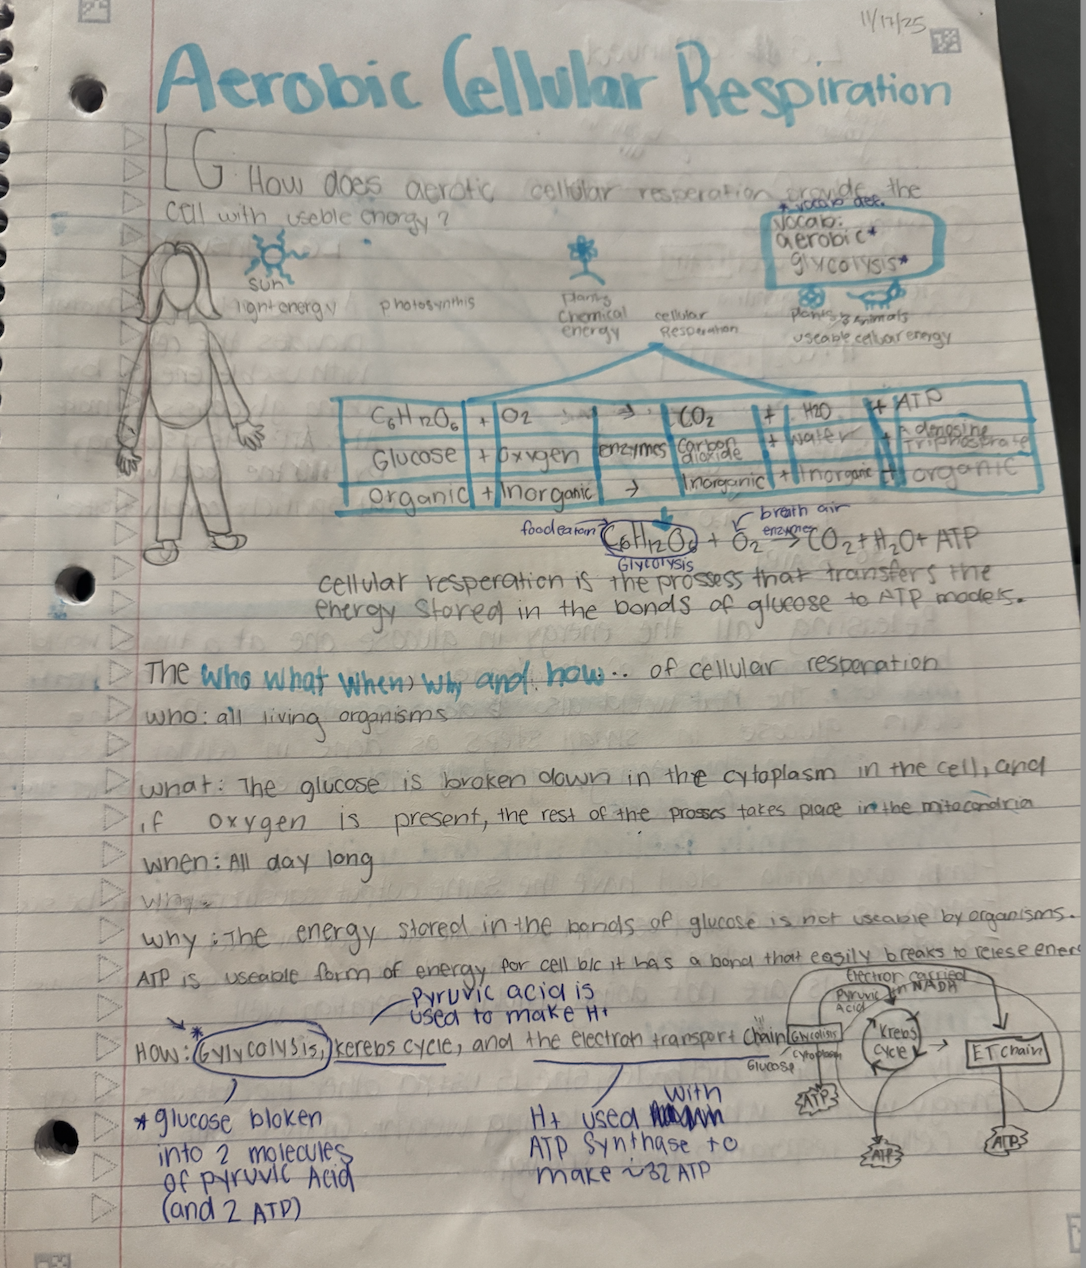 11/17/25
Aerobic Cellular Respiration
LG How does aerotic cellular resperation provide the
cell with useble energy?
* vocab def.
vocab:
aerobic*
glycolysis*
sun
light energy
photosynthis
plants
chemical
energy
cellular
Resperation
plants & animals
useable celluar energy
C6H12O6 + O2 → CO2 + H2O + ATP
Glucose + oxygen enzymes carbon dioxide + water + Adenosine Triphosphate
organic + Inorganic → Inorganic + Inorganic + organic
food eaten
breath air
C6H12O6 + O2 enzymes → CO2 + H2O + ATP
Glycolysis
cellular resperation is the prossess that transfers the
energy stored in the bonds of glucose to ATP models.
The who what, when, why and how... of cellular resperation
who: all living organisms
what: The glucose is broken down in the cytoplasm in the cell, and
if oxygen is present, the rest of the prosses takes place in the mitocondria
when: All day long
why: The energy stored in the bonds of glucose is not useable by organisms.
ATP is useable form of energy for cell b/c it has a bond that easily breaks to relese ener
Pyruvic acid is
used to make H+
How: * Gylycolysis, kerebs cycle, and the electron transport chain
* glucose bloken
into 2 molecules
of pyruvic Acid
(and 2 ATP)
H+ used with
ATP Synthase to
make ~32 ATP
Electron carried
in NADH
Pyruvic
acid
Glycolisis
cytoplasm
Glucose
Krebs
cycle
ET chain
ATP
ATP
ATP